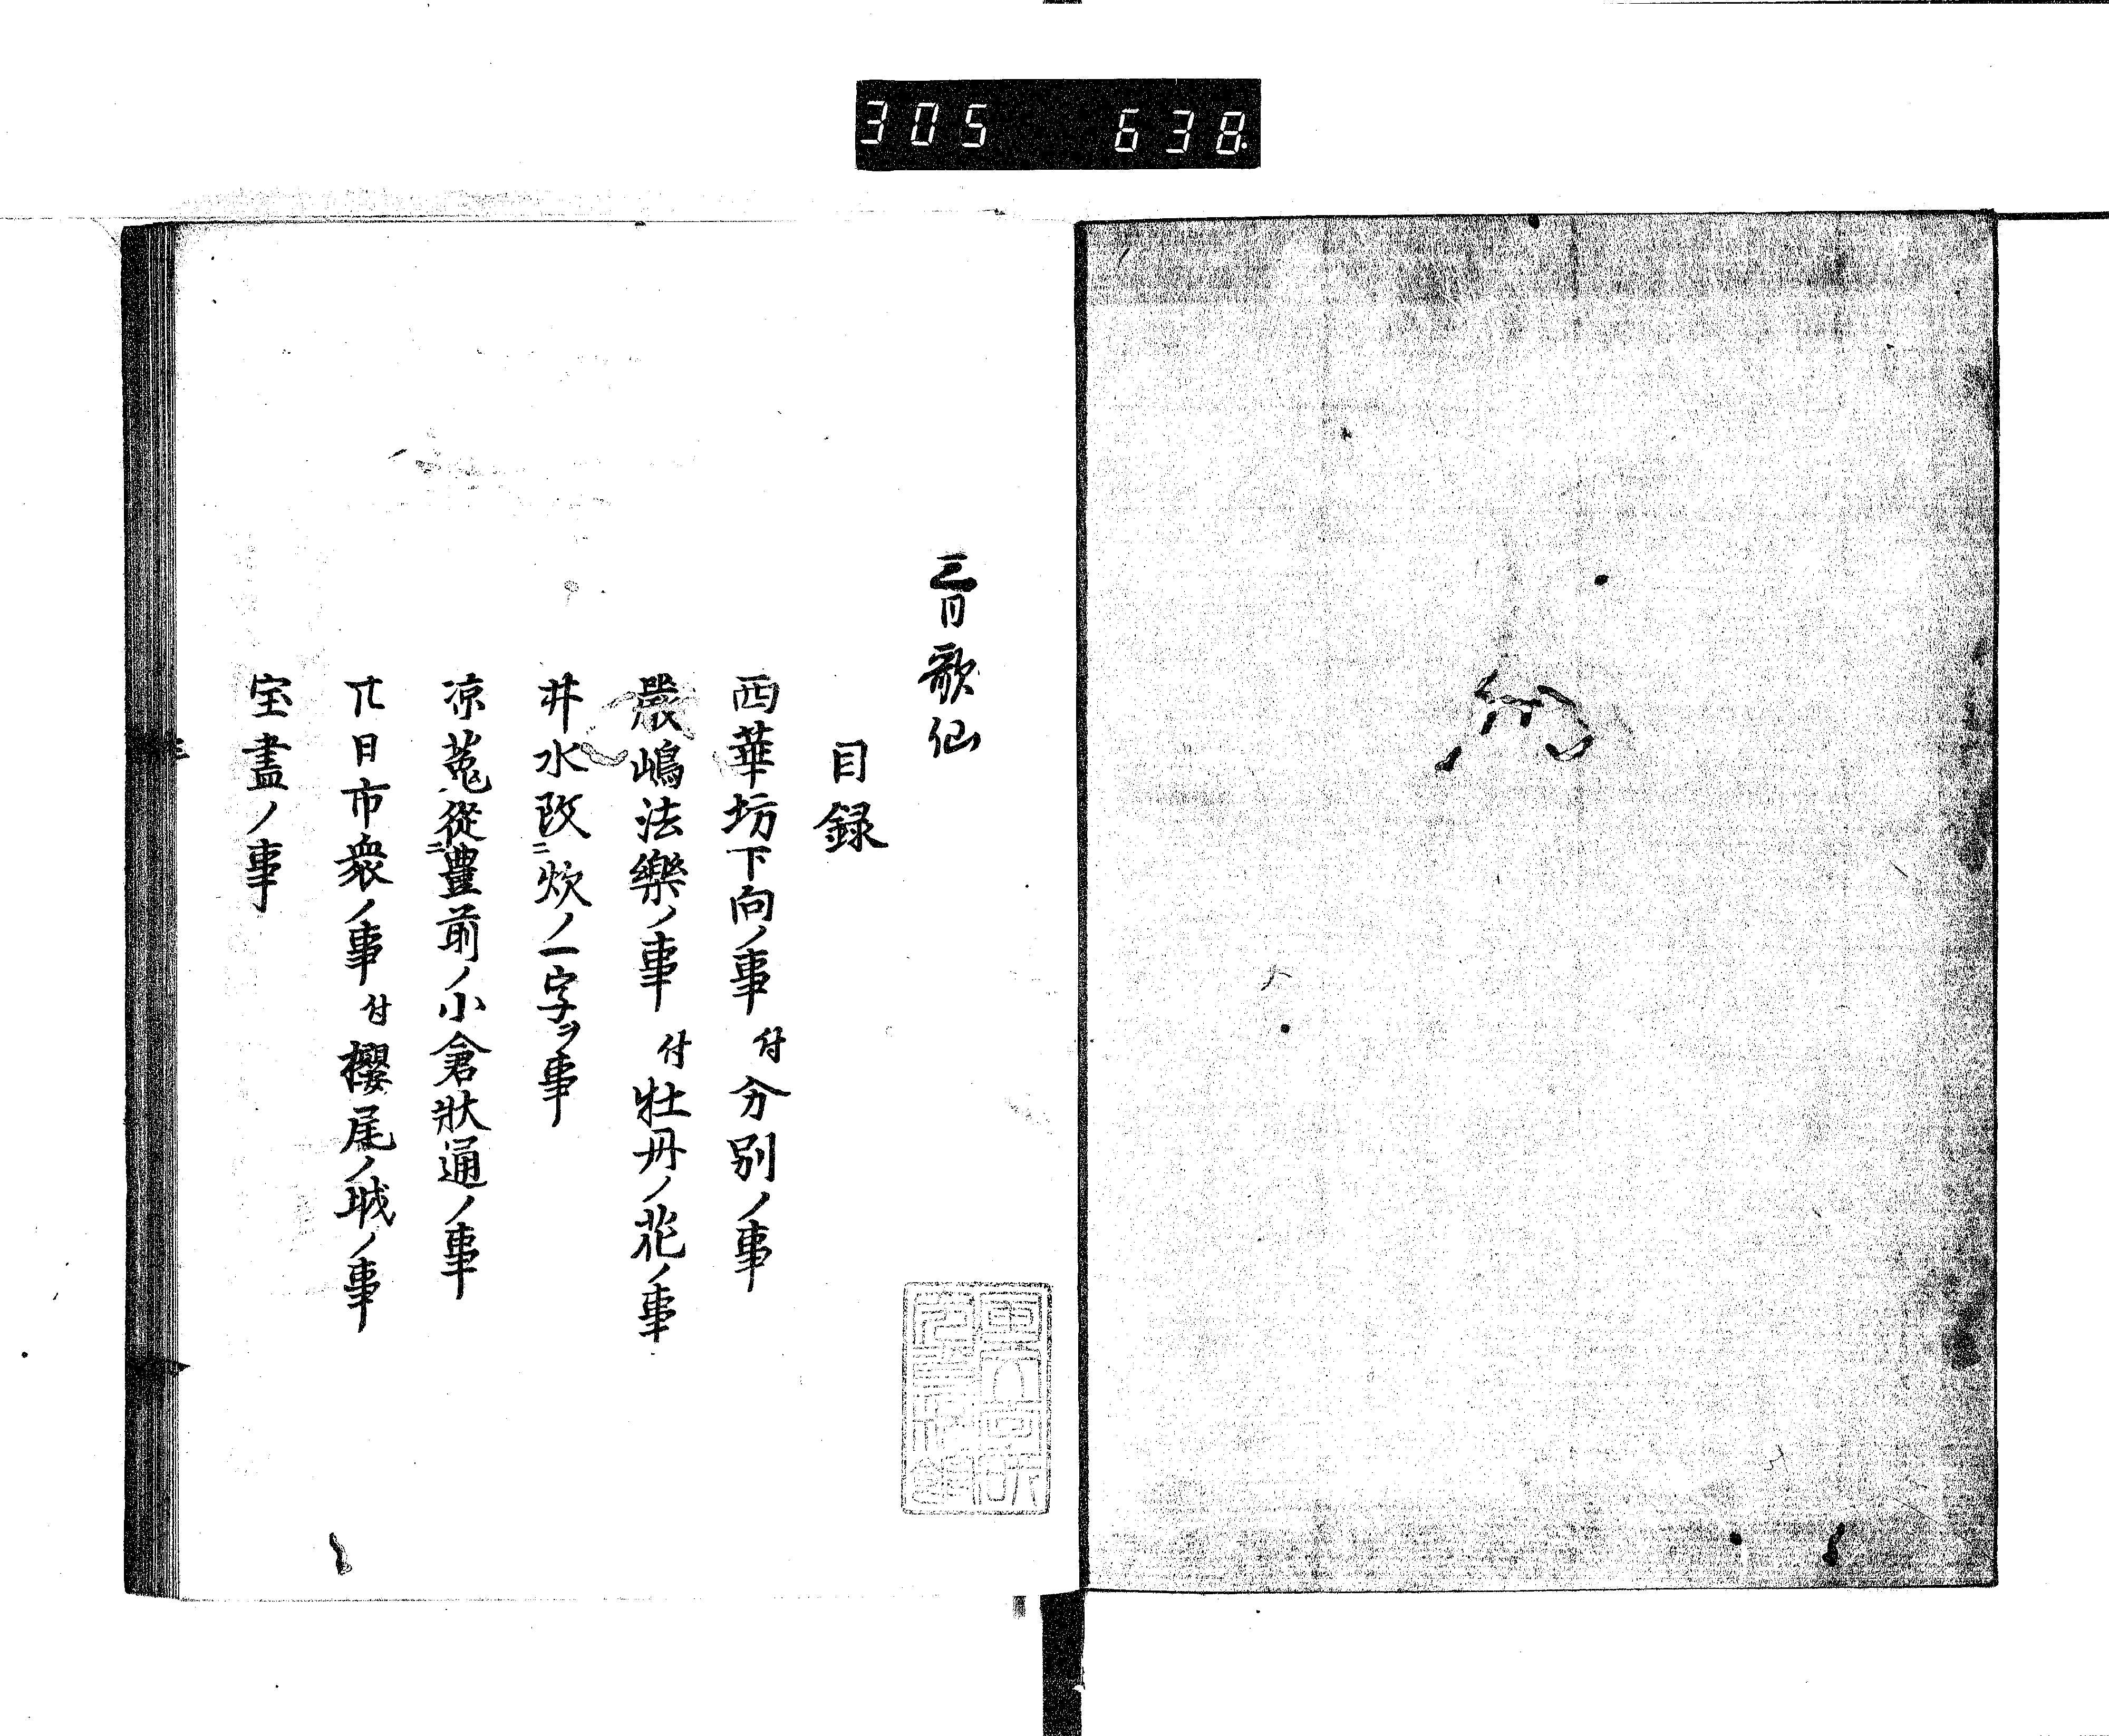 305 638
三日歌仙
目録
西華坊下向ノ事 付 分別ノ事
嚴嶋法樂ノ事 付 牡丹ノ花ノ事
井水改ニ炊ノ一字ヲ事
凉菟從ニ豊前ノ小倉狀通ノ事
廿日市衆ノ事 付 櫻尾ノ城ノ事
宝盡ノ事